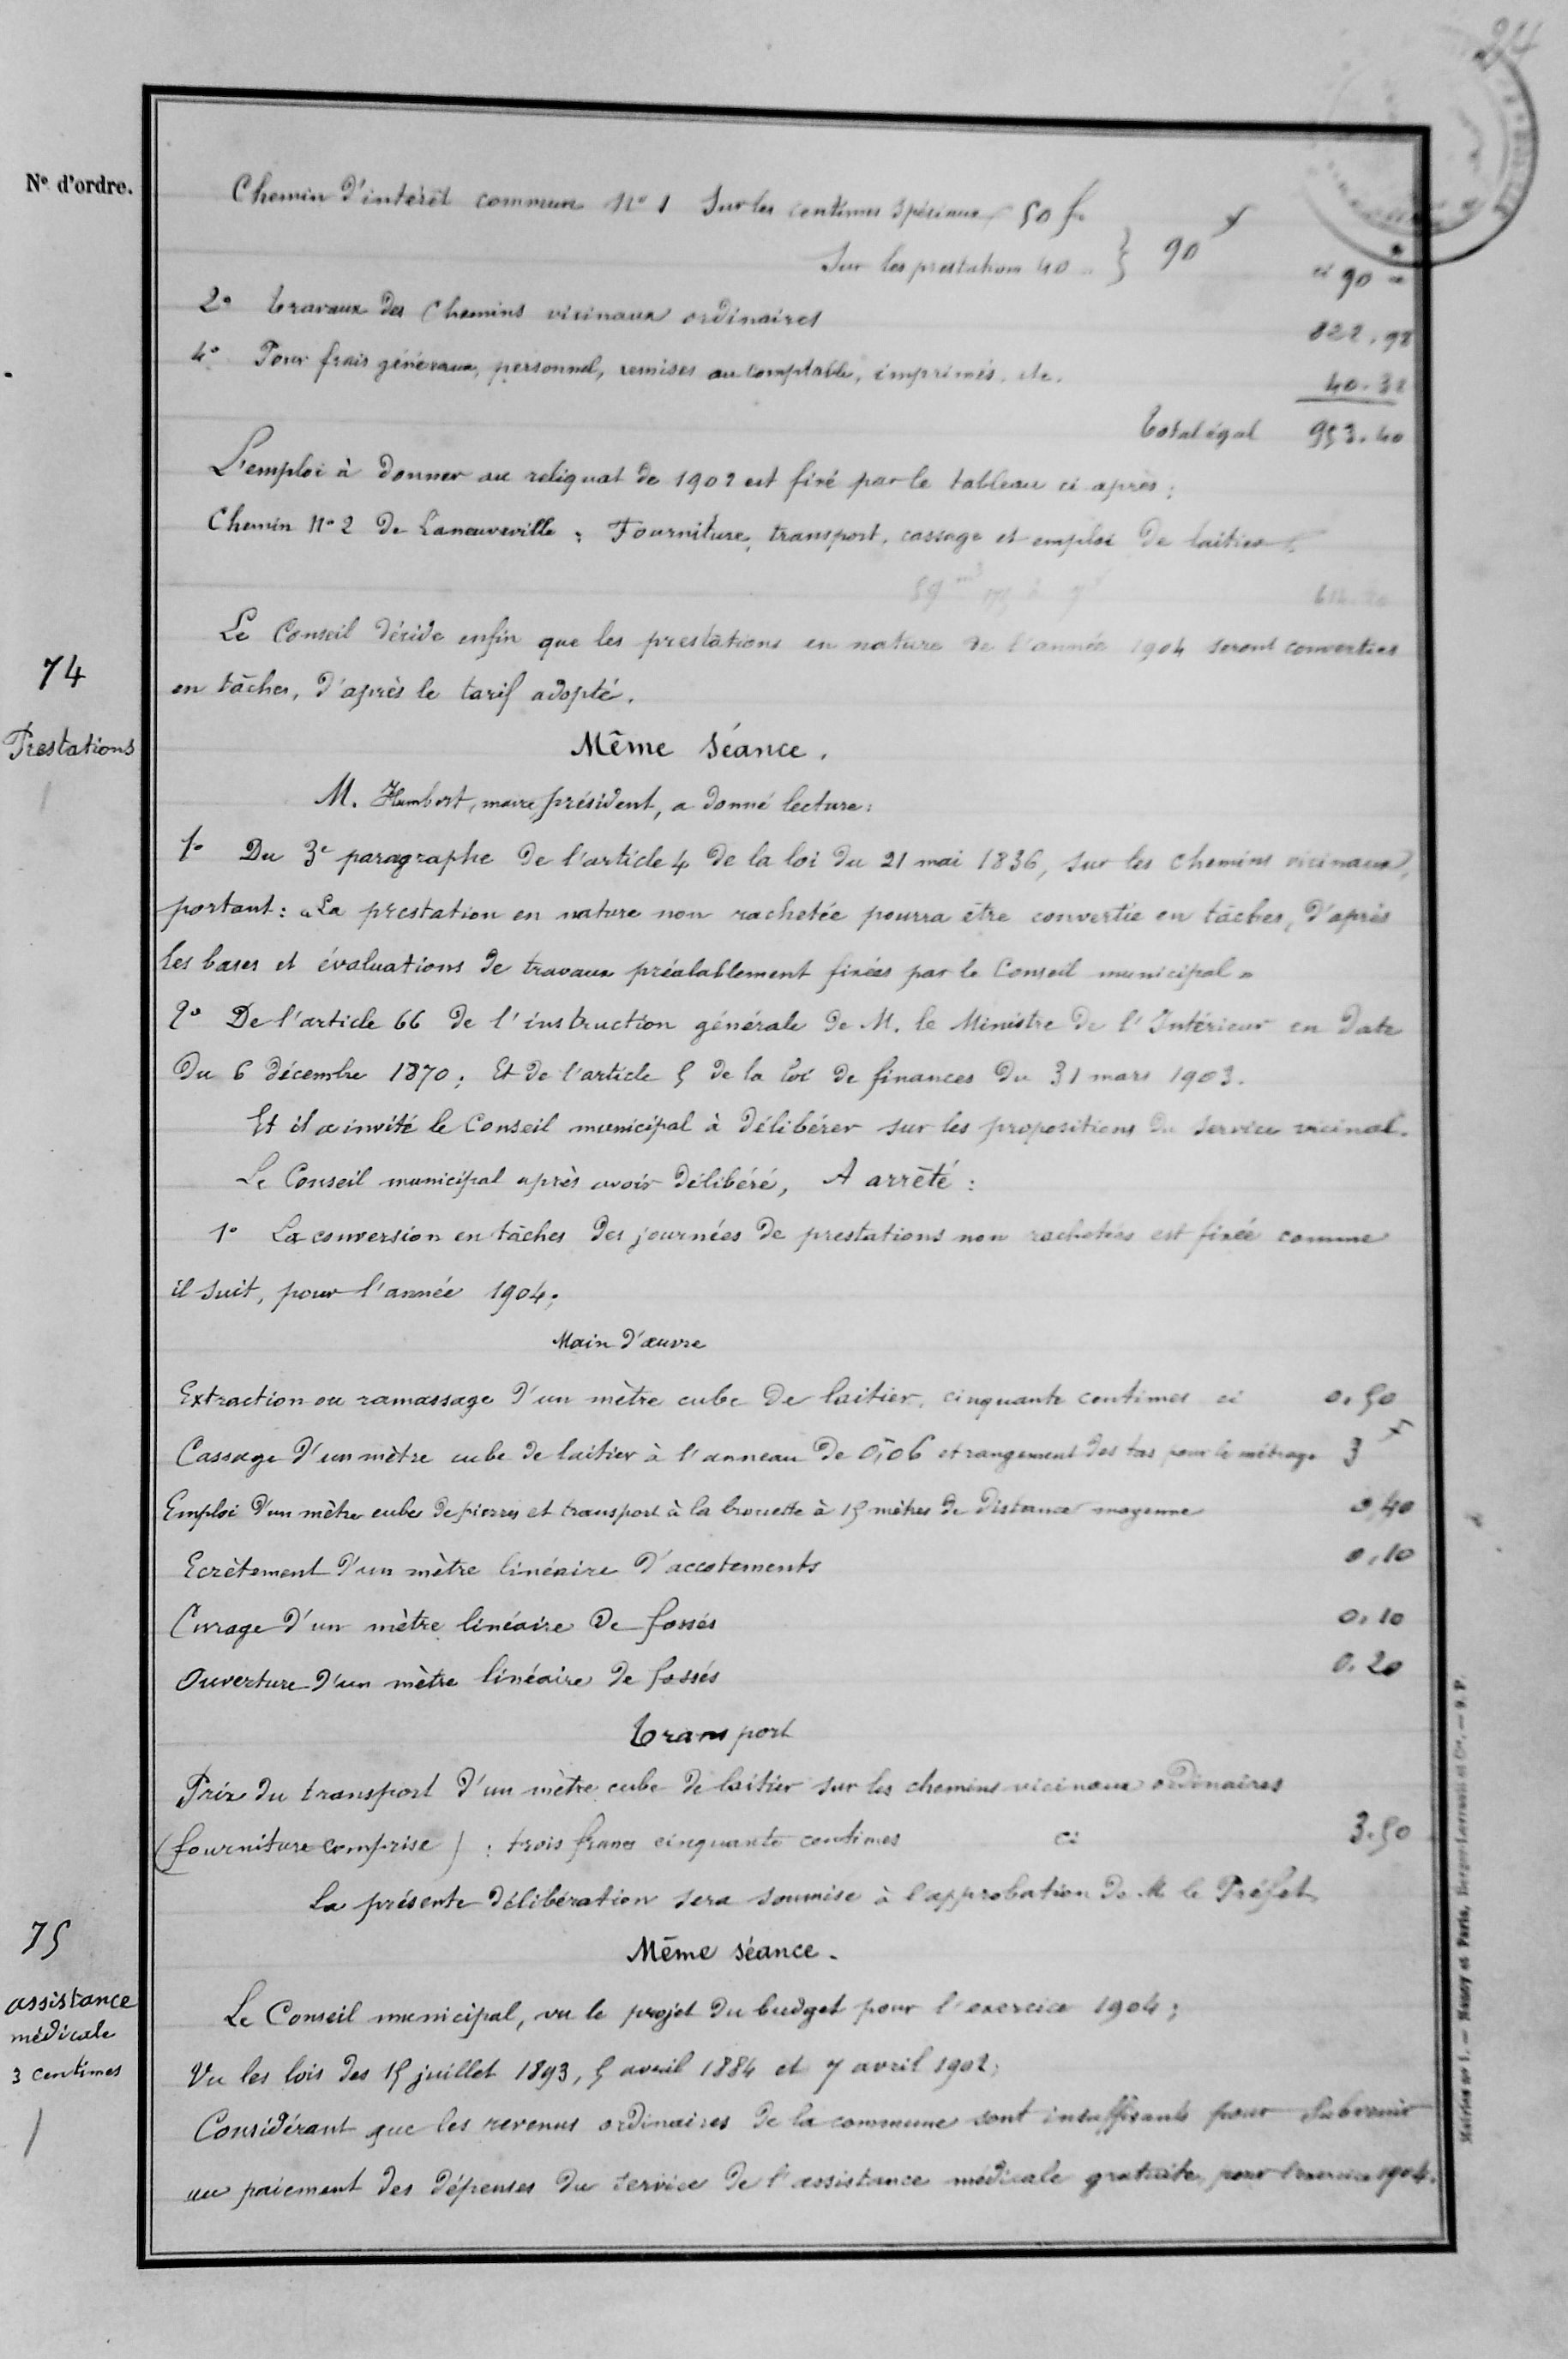 24
N° d'ordre.
Chemin d'intérêt commun N° 1 Sur les centimes spéciaux 50 f
Sur les prestations 40 } 90 f ci 90
2° Travaux des Chemins vicinaux ordinaires 822.98
4° Pour frais généraux, personnel, remises au comptable, imprimés, etc.
Total égal 953.40
L'emploi à donner au reliquat de 1902 est fixé par le tableau ci après :
Chemin N° 2 de Laneuveville : Fourniture, transport, cassage et emploi de laitier
59 m3
Le Conseil décide enfin que les prestations en nature de l'année 1904 seront converties
en tâches, d'après le tarif adopté.
74
Prestations
Même Séance.
M. Humbert, maire président, a donné lecture :
1° Du 3e paragraphe de l'article 4 de la loi du 21 mai 1836, sur les chemins vicinaux,
portant : « La prestation en nature non rachetée pourra être convertie en tâches, d'après
les bases et évaluations de travaux préalablement fixées par le Conseil municipal »
2° De l'article 66 de l'instruction générale de M. le Ministre de l'Intérieur en date
du 6 décembre 1870 ; Et de l'article 5 de la loi de finances du 31 mars 1903.
Et il a invité le Conseil municipal à délibérer sur les propositions du service vicinal.
Le Conseil municipal après avoir délibéré, A arrêté :
1° La conversion en tâches des journées de prestations non rachetées est fixée comme
il suit, pour l'année 1904 ;
Main d'œuvre
Extraction ou ramassage d'un mètre cube de laitier, cinquante centimes ci 0.50
Cassage d'un mètre cube de laitier à l'anneau de 0,m06 et rangement des tas pour le métrage 3 f
Emploi d'un mètre cube de pierres et transport à la brouette à 15 mètres de distance moyenne 0,40
Ecrètement d'un mètre linéaire d'accotements 0,10
Curage d'un mètre linéaire de fossés 0.10
Ouverture d'un mètre linéaire de fossés 0.20
Transport
Prix du transport d'un mètre cube de laitier sur les chemins vicinaux ordinaires
(fourniture comprise) : trois francs cinquante centimes ci 3.50
La présente délibération sera soumise à l'approbation de M le Préfet
75
assistance
médicale
3 centimes
Même séance.
Le Conseil municipal, vu le projet du budget pour l'exercice 1904 ;
Vu les lois des 15 juillet 1893, 5 avril 1884 et 7 avril 1902 ;
Considérant que les revenus ordinaires de la commune sont insuffisants pour subvenir
au paiement des dépenses du service de l'assistance médicale gratuite pour l'exercice 1904.
Mairies n° 1. — Nancy et Paris, Berger-Levrault et Cie. — 9. P.